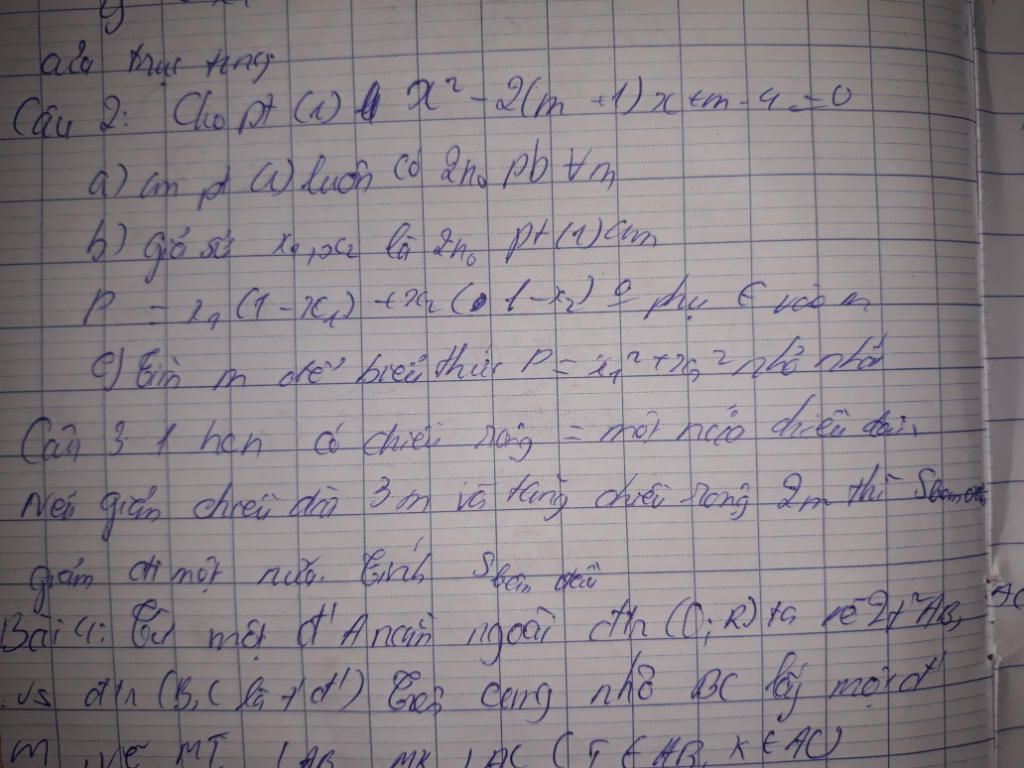 trục tung
Câu 2: Cho pt (1) x² - 2(m+1)x + m - 4 = 0
a) cm pt (1) luôn có 2n₀ pb ∀m
b) giả sử x₁, x₂ là 2n₀ pt (1) cm
P = x₁(1-x₁) + x₂(1-x₂) phụ ∈ vào m
c) Tìm m để biểu thức P = x₁² + x₂² nhỏ nhất
Câu 3 1 hcn có chiều rộng = một nửa chiều dài.
Nếu giảm chiều dài 3m và tăng chiều rộng 2m thì S
giảm đi một nửa. Tính S ban đầu
Bài 4: Từ một đ' A nằm ngoài đtr (O; R) ta vẽ 2t² AB, AC
vs đtr (B, C là t đ') Trên cung nhỏ BC lấy một đ'
M, vẽ MI ⊥ AB, MK ⊥ AC (I ∈ AB, K ∈ AC)